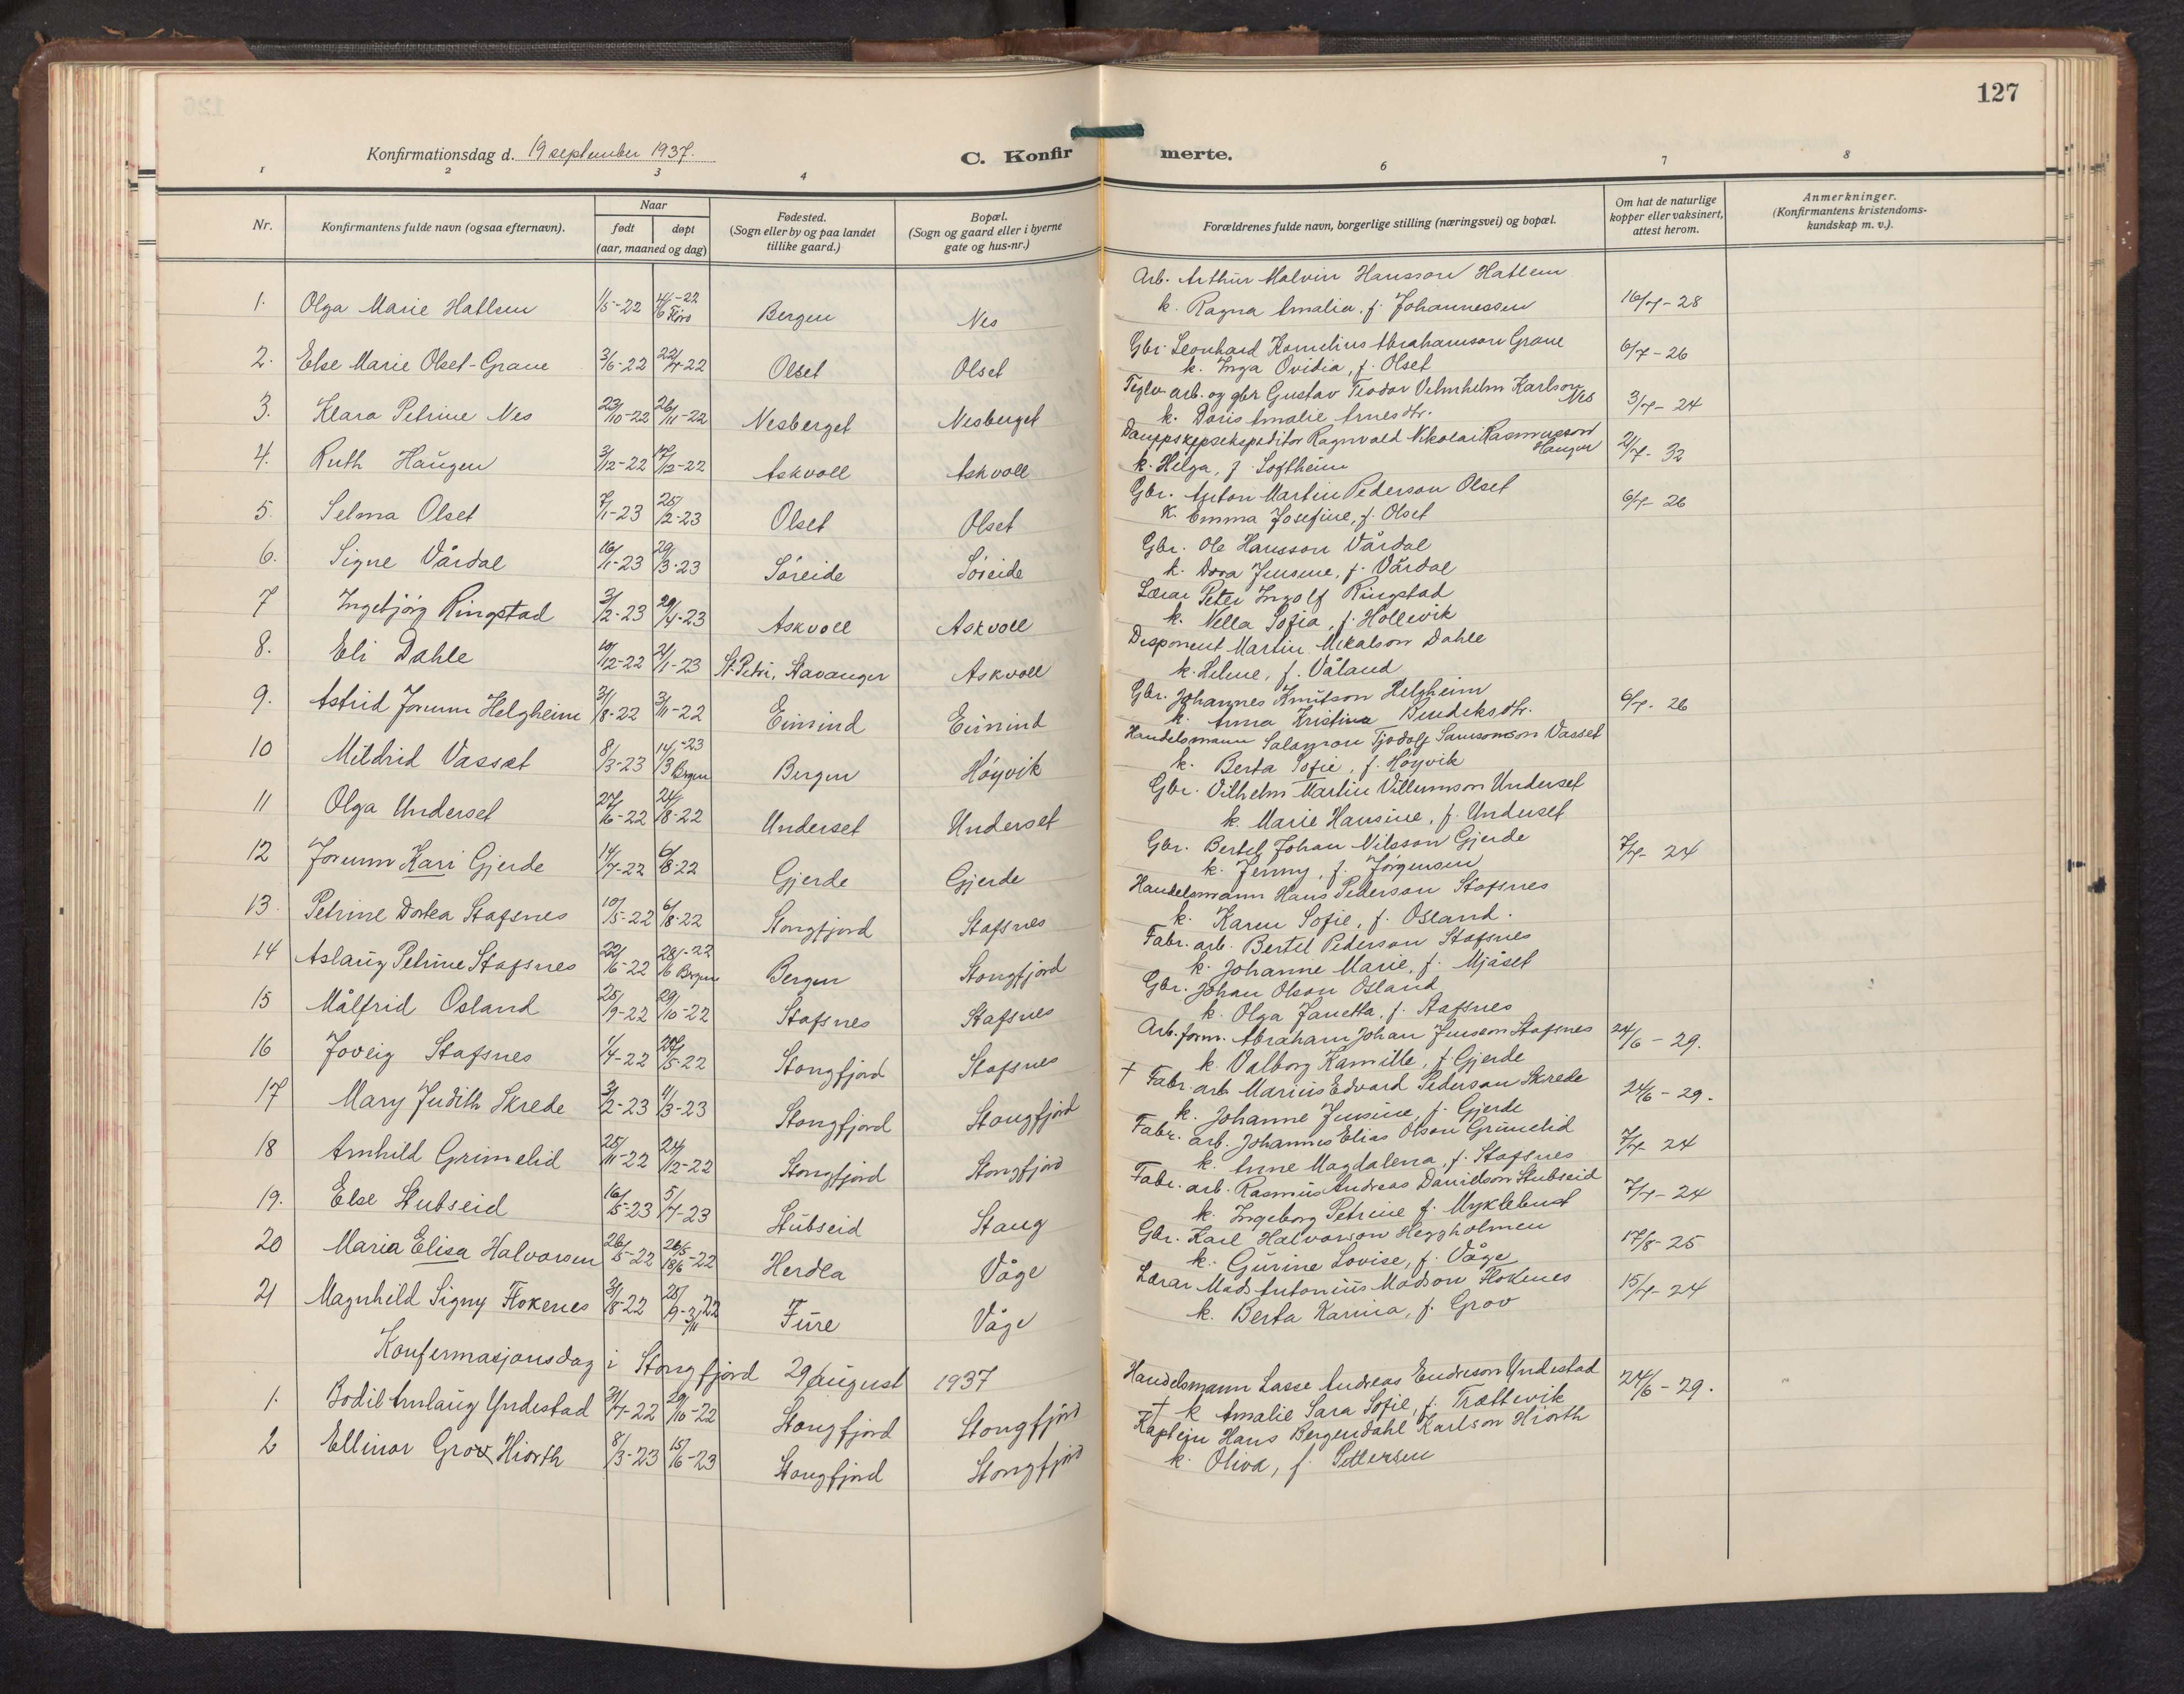 127
Konfirmationsdag d. 19 september 1937.
C. Konfirmerte.
1 2 3 4 6 7 8
Nr.
Konfirmantens fulde navn (ogsaa efternavn).
Naar
født døpt
(aar, maaned og dag)
Fødested.
(Sogn eller by og paa landet
tillike gaard.)
Bopæl.
(Sogn og gaard eller i byerne
gate og hus-nr.)
Forældrenes fulde navn, borgerlige stilling (næringsvei) og bopæl.
Om hat de naturlige
kopper eller vaksinert,
attest herom.
Anmerkninger.
(Konfirmantens kristendoms-
kundskap m. v.).
1. Olga Marie Hatlem 1/5-22 4/6-22 Florø Bergen Nes
Arb. Arthur Malvin Hansson Hatlem
k. Ragna Amalia, f. Johannessen 16/7-28
2. Else Marie Olset-Grane 3/6-22 22/7-22 Olset Olset
Gbr. Leonhard Kornelius Abrahamson Grane 6/7-26
k. Inga Ovidia, f. Olset
3. Klara Petrine Nes 23/10-22 26/11-22 Nesberget Nesberget
Teglv. arb. og gbr Gustav Teodor Velmhelm Karlson Nes 3/7-24
k. Doris Amalie Arnesdtr.
4. Ruth Haugen 3/12-22 17/12-22 Askvoll Askvoll
Dampskipsekspeditør Ragnvald Nikolai Rasmusson Haugen 2/7-32
k. Helga, f. Loftheim
5. Selma Olset 7/1-23 25/2-23 Olset Olset
Gbr. Anton Martin Pederson Olset 6/7-26
k. Emma Josefine, f. Olset
6. Signe Vårdal 16/1-23 29/3-23 Søreide Søreide
Gbr. Ole Hansson Vårdal
k. Dora Jensine, f. Vårdal
7 Ingebjørg Ringstad 3/2-23 29/4-23 Askvoll Askvoll
Lærar Peter Ingolf Ringstad
k. Nella Sofia, f. Hollevik
8. Eli Dahle 10/12-22 21/1-23 St. Petri, Stavanger Askvoll
Disponent Martin Mikalson Dahle
k. Helene, f. Våland
9. Astrid Jorunn Helgheim 31/8-22 3/11-22 Eimind Eimind
Gbr. Johannes Knutson Helgheim 6/7-26
k. Anna Kristina Bendiksdtr.
10 Mildrid Vasset 8/3-23 14/3-23 Bergen Bergen Høyvik
Handelsmann Salamon Tjodolf Samsonson Vasset
k. Berta Sofie, f. Høyvik
11 Olga Underset 27/6-22 24/8-22 Underset Underset
Gbr. Vilhelm Martin Villumson Underset
k. Marie Hansine, f. Underset
12 Jorunn Kari Gjerde 14/7-22 6/8-22 Gjerde Gjerde
Gbr. Bertel Johan Nilsson Gjerde 7/7-24
k. Jenny, f. Jørgensen
13. Petrine Dortea Stafsnes 10/5-22 6/8-22 Stongfjord Stafsnes
Handelsmann Hans Pederson Stafsnes
k. Karen Sofie, f. Osland.
14 Aslaug Petrine Stafsnes 22/6-22 28/6-22 Bergen Bergen Stongfjord
Fabr. arb. Bertel Pederson Stafsnes
k. Johanne Marie, f. Mjåset
15 Målfrid Osland 25/9-22 29/10-22 Stafsnes Stafsnes
Gbr. Johan Olson Osland
k. Olga Janetta, f. Stafsnes
16 Joveig Stafsnes 1/4-22 27/5-22 Stongfjord Stafsnes
Arb. form. Abraham Johan Jenson Stafsnes 24/6-29.
k. Valborg Kamille, f. Gjerde
17 Mary Judith Skrede 3/2-23 11/3-23 Stongfjord Stongfjord
† Fabr. arb. Marius Edvard Pederson Skrede 24/6-29.
k. Johanne Jensine, f. Gjerde
18 Arnhild Grimelid 25/11-22 24/12-22 Stongfjord Stongfjord
Fabr. arb. Johannes Elias Olson Grimelid 7/7-24
k. Anne Magdalena, f. Stafsnes
19. Else Stubseid 16/5-23 5/7-23 Stubseid Staug
Fabr. arb. Rasmus Andreas Danielson Stubseid 7/7-24
k. Ingeborg Petrine f. Myklebust
20 Maria Elisa Halvorsen 26/5-22 26/5 18/6-22 Herdla Våge
Gbr. Karl Halvorson Heggholmen 17/8-25
k. Gurine Lovise, f. Våge
21 Magnhild Signy Flokenes 31/8-22 25/9-3/11 22 Fure Våge
Lærar Mads Antonius Madson Flokenes 15/7-24
k. Berta Karina, f. Grov
Konfermasjonsdag i Stongfjord 29 august 1937
1. Bodil Arnlaug Yndestad 31/7-22 29/10-22 Stongfjord Stongfjord
Handelsmann Lasse Andreas Endreson Yndestad 24/6-29.
† k Amalie Sara Sofie, f. Trættevik
2 Ellinor Grov Hiorth 8/3-23 15/6-23 Stongfjord Stongfjord
Kaptein Hans Bergendahl Karlson Hiorth
k. Oliva, f. Pettersen